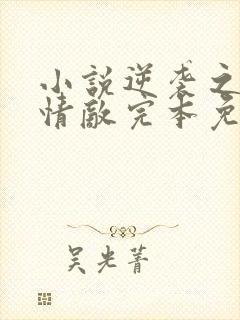 小説逆袭之
情敵完本免
吴光菁